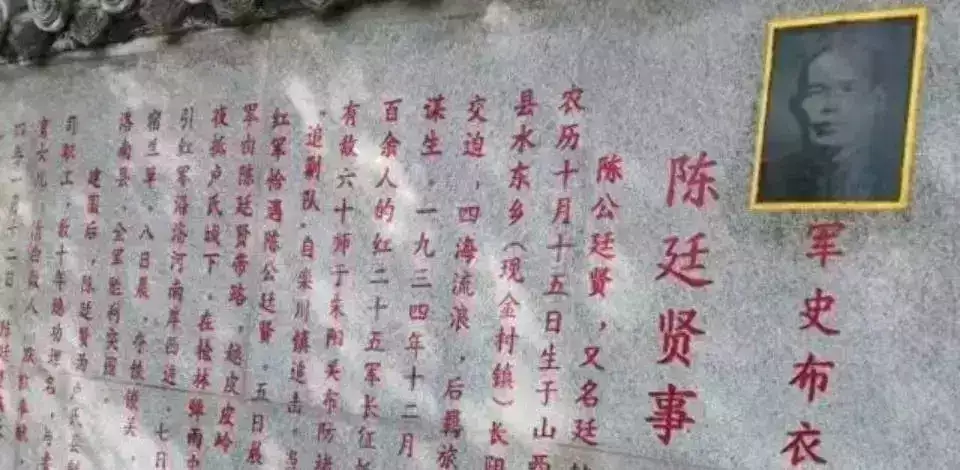 军史布衣
陈廷贤事
陈公廷贤，又名廷
农历十月十五日生于山西
县水东乡（现金村镇）长
交迫，四海流浪，后羁旅
谋生。一九三四年十二月
百余人的红二十五军长征
有敌六十师于朱阳关布防堵
“追剿队”自栾川镇追击。
红军恰遇陈公廷贤。五日晨
军由陈廷贤带路，越皮皮岭
夜抵卢氏城下，在枪林弹雨
引红军沿洛河南岸西进。七日
宿兰草。八日晨，夺铁锁关
洛南县，全军胜利突围。
建国后，陈廷贤为卢氏县
司职工，数十年隐功埋名，与